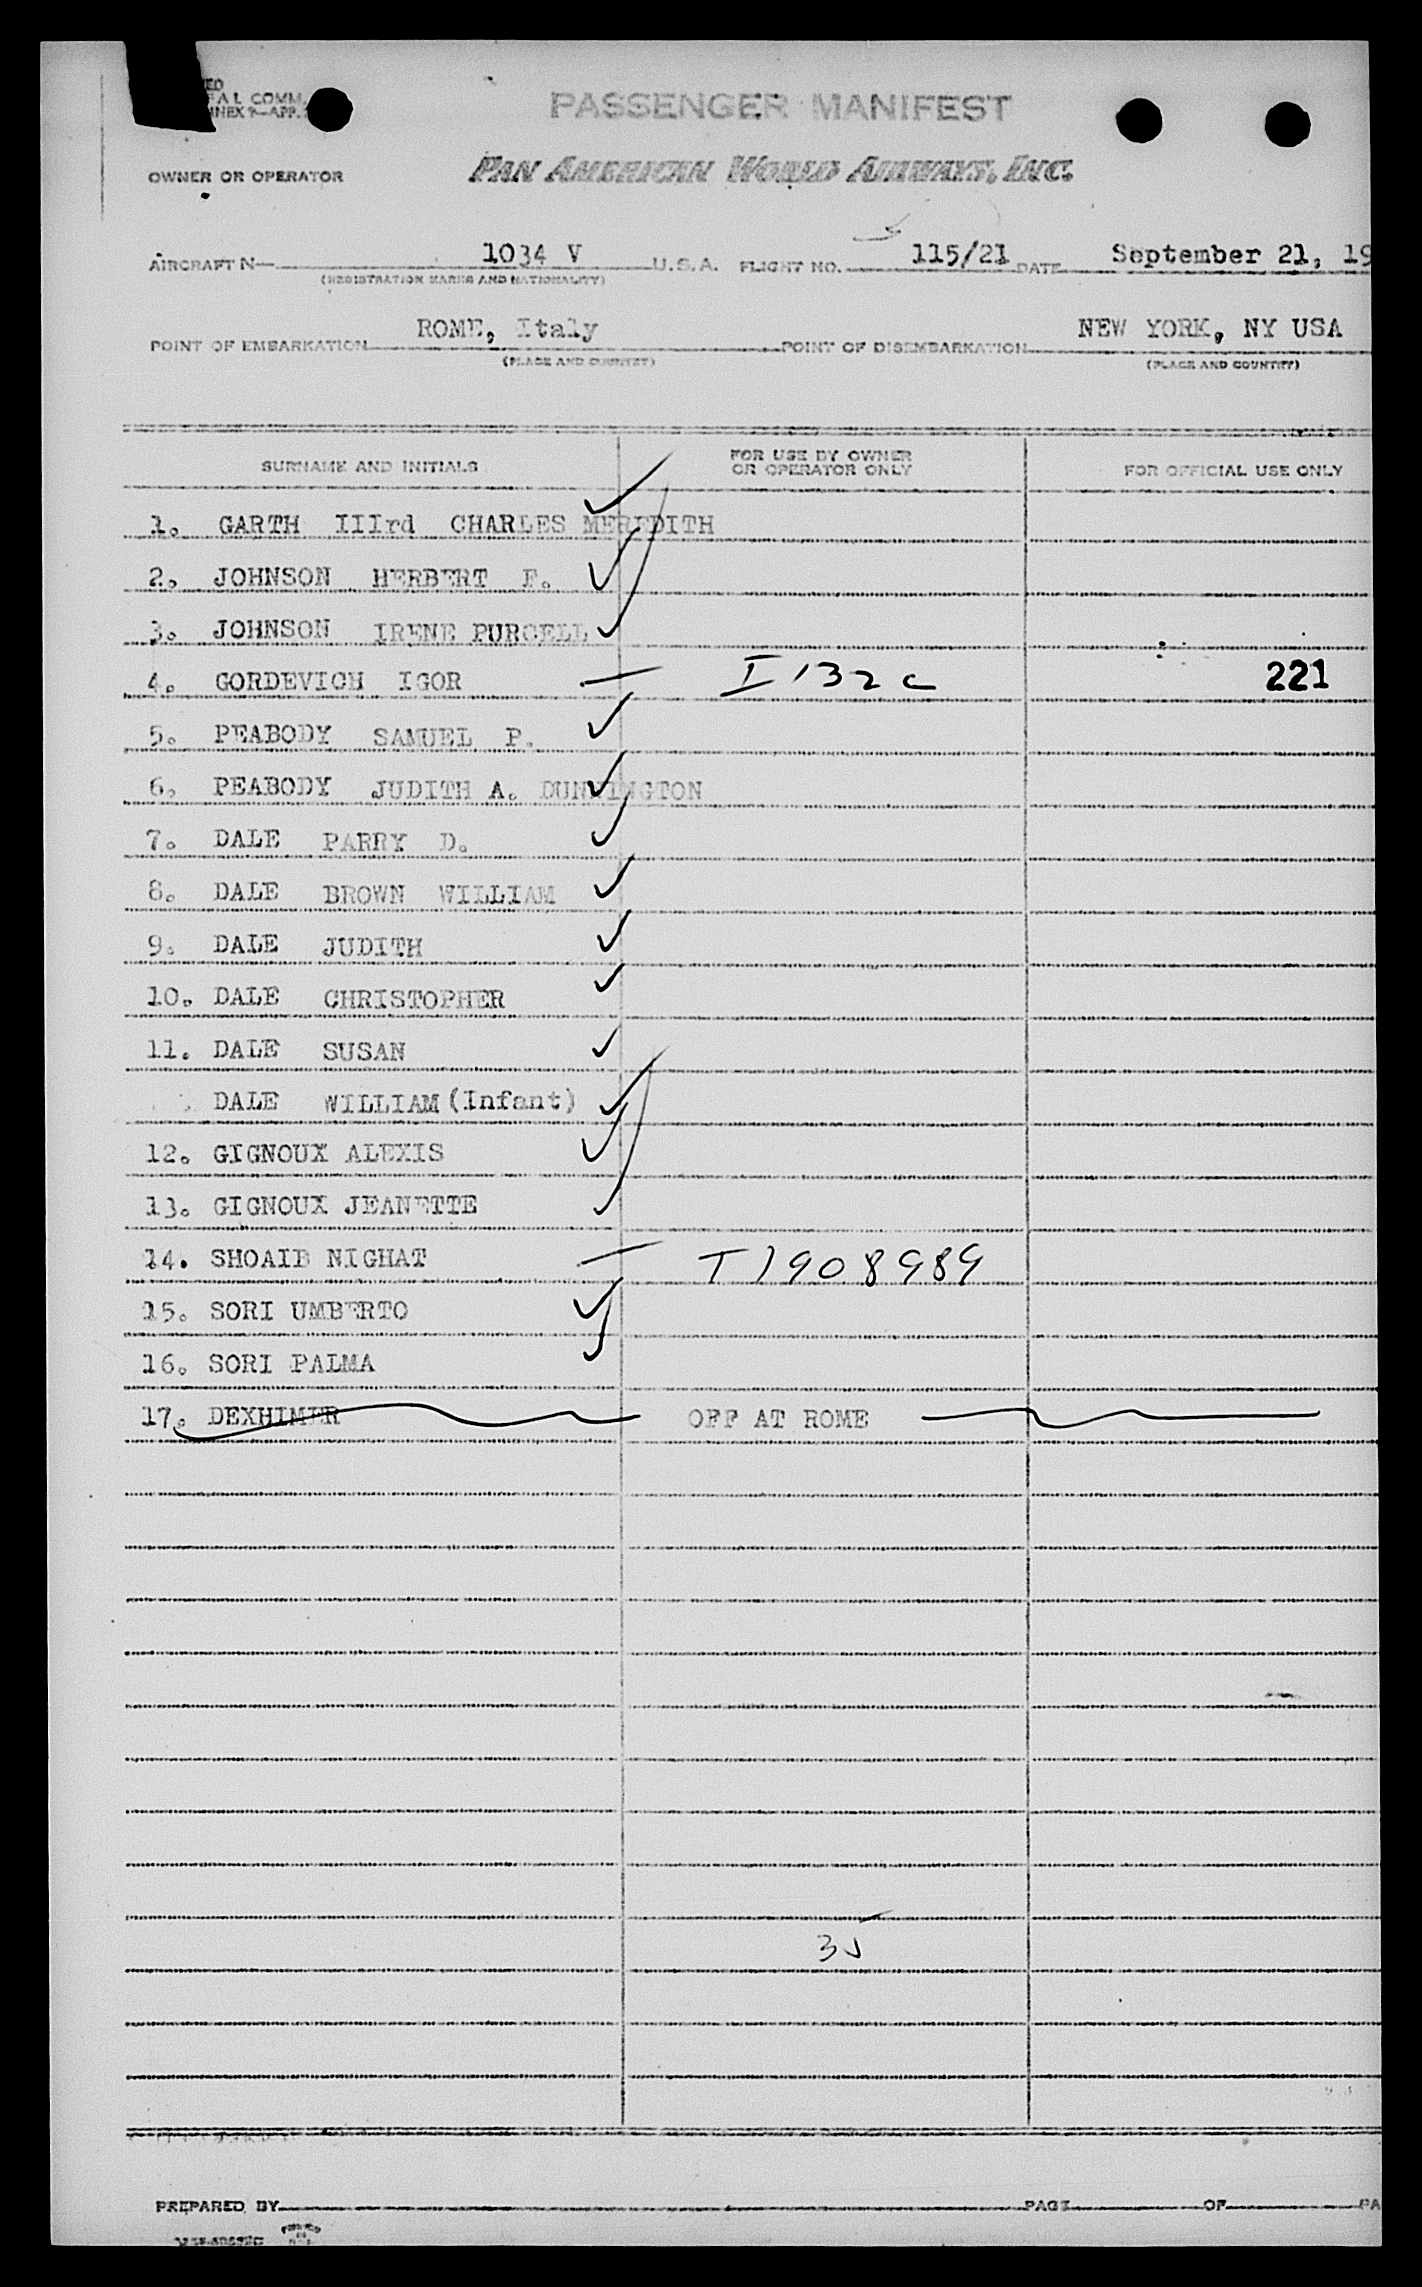 PASSENGER MANIFEST
OWNER OR OPERATOR PAN AMERICAN WORLD AIRWAYS, INC.
AIRCRAFT N— 1034 V U.S.A. FLIGHT NO. 115/21 DATE September 21, 19
(REGISTRATION MARKS AND NATIONALITY)
POINT OF EMBARKATION ROME, Italy POINT OF DISEMBARKATION NEW YORK, NY USA
(PLACE AND COUNTRY) (PLACE AND COUNTRY)
SURNAME AND INITIALS FOR USE BY OWNER OR OPERATOR ONLY FOR OFFICIAL USE ONLY
1. GARTH IIIrd CHARLES MEREDITH
2. JOHNSON HERBERT F.
3. JOHNSON IRENE PURCELL
4. GORDEVICH IGOR I 132 c 221
5. PEABODY SAMUEL P.
6. PEABODY JUDITH A. DUNNINGTON
7. DALE PARRY D.
8. DALE BROWN WILLIAM
9. DALE JUDITH
10. DALE CHRISTOPHER
11. DALE SUSAN
DALE WILLIAM (Infant)
12. GIGNOUX ALEXIS
13. GIGNOUX JEANETTE
14. SHOAIB NIGHAT T1908989
15. SORI UMBERTO
16. SORI PALMA
17. DEXHIMER OFF AT ROME
35
PREPARED BY PAGE OF PA